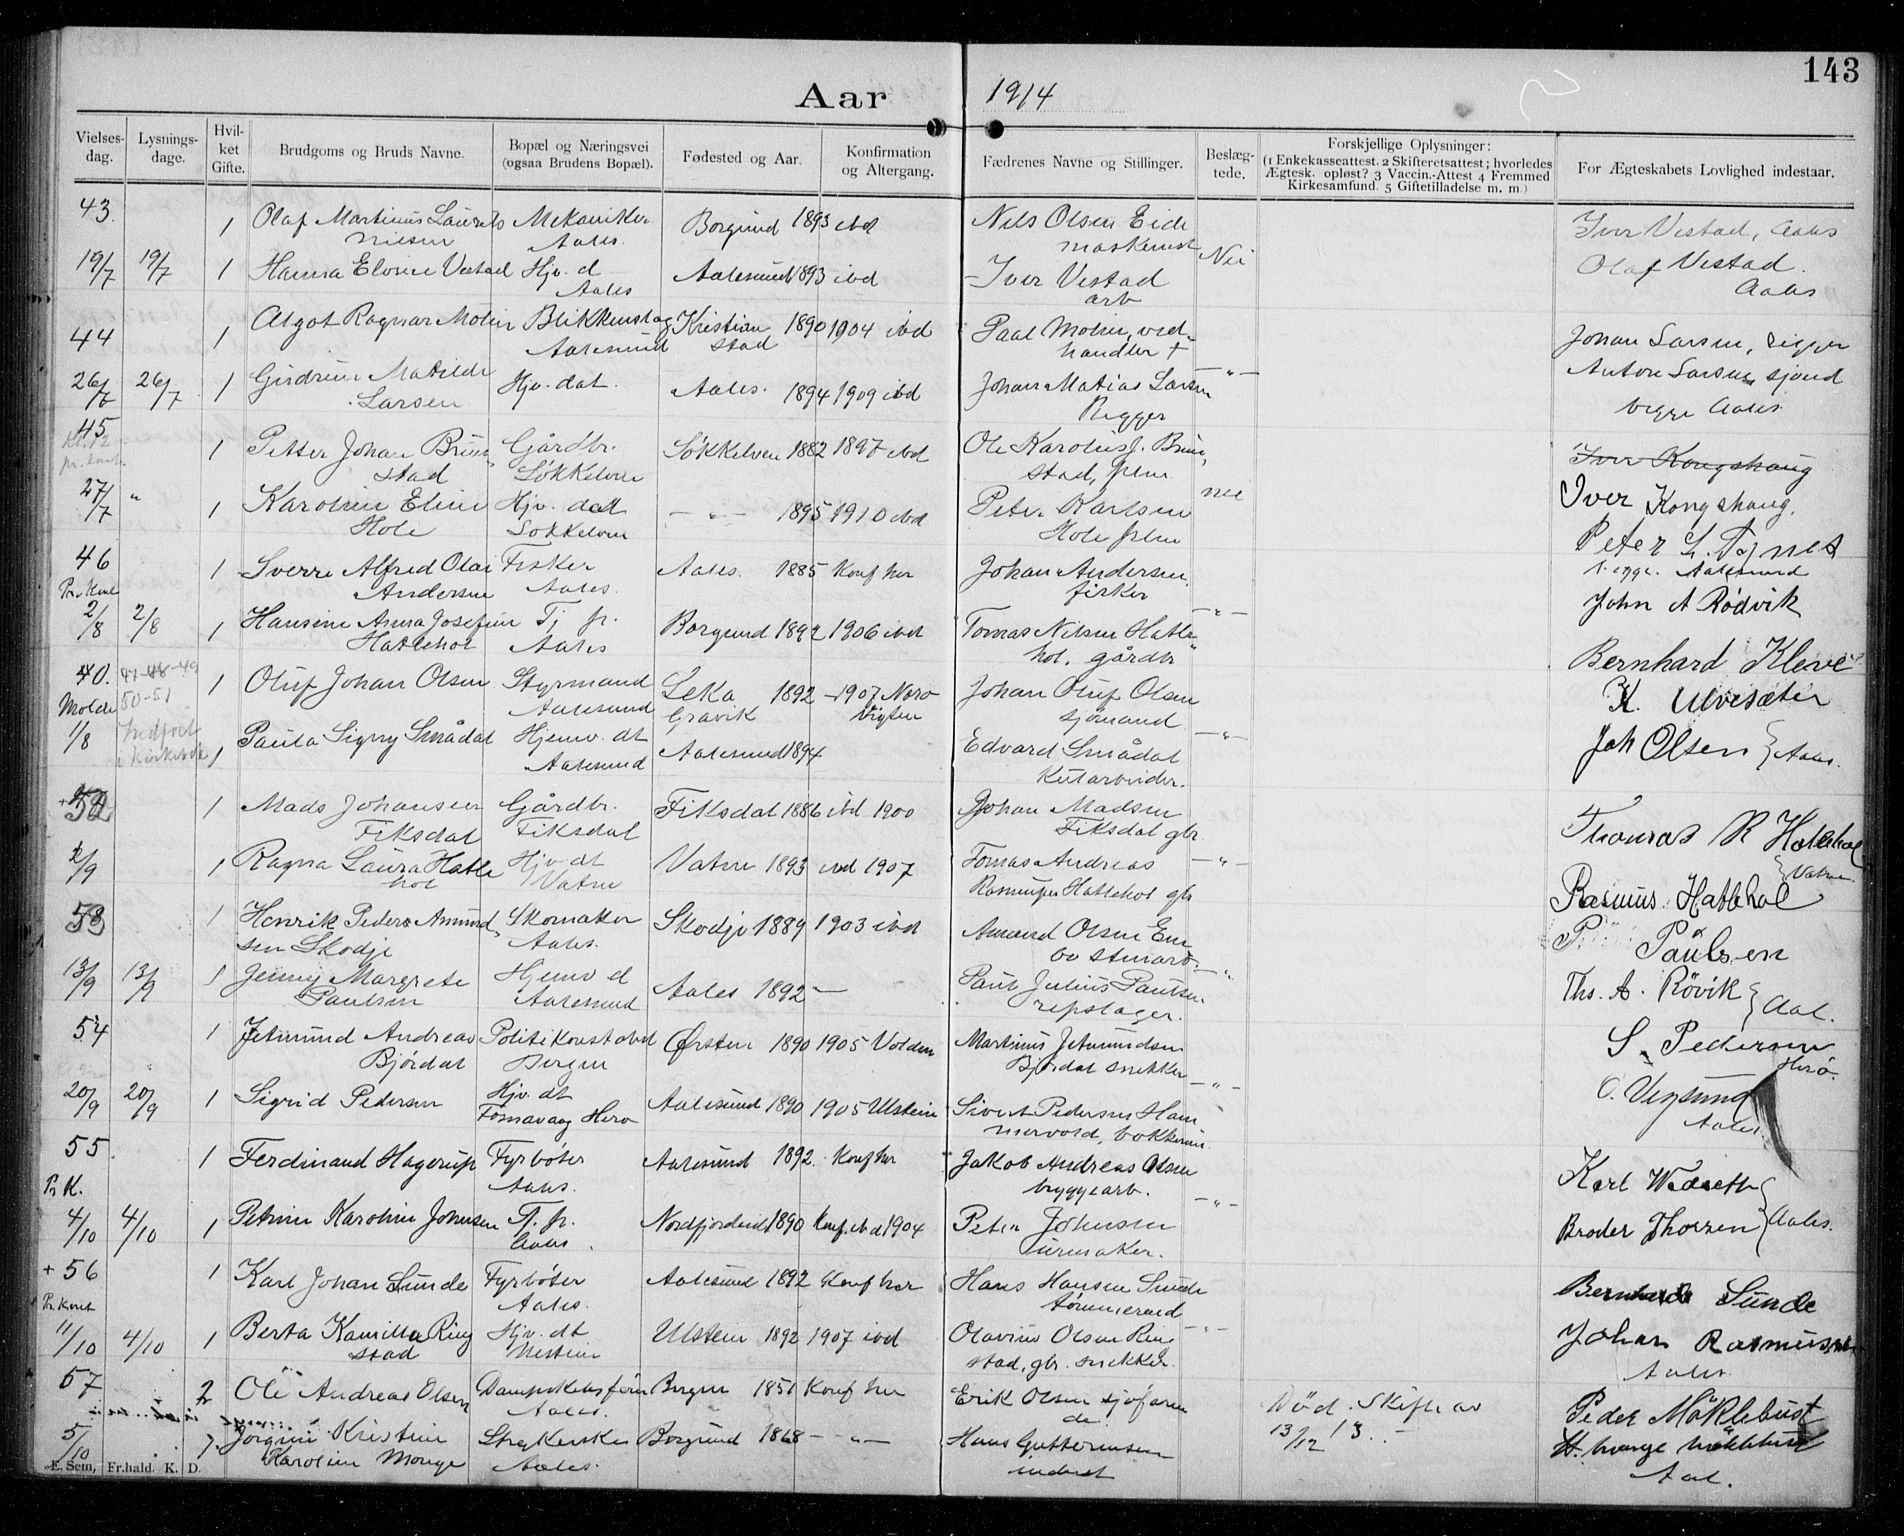 143
Aar 1914
Vielses-dag. Lysnings-dage. Hvil-ket Gifte. Brudgoms og Bruds Navne. Bopæl og Næringsvei (ogsaa Brudens Bopæl). Fødested og Aar. Konfirmation og Altergang. Fædrenes Navne og Stillinger. Beslæg-tede. Forskjellige Oplysninger: (1 Enkekasseattest. 2 Skifteretsattest; hvorledes Ægtesk. opløst? 3 Vaccin.-Attest 4 Fremmed Kirkesamfund. 5 Giftetilladelse m. m.) For Ægteskabets Lovlighed indestaar.
43. 1 Olaf Martinus Laurits Mekaniker Borgund 1893 ibd Nils Olsen Eide Iver Vestad, Aales
Nilsen Aales. maskinist Nei
19/7 19/7 1 Hanna Elvine Vestad Hjv. d Aalesund 1893 ibd Iver Vestad Olaf Vestad.
Aales arb Aales
44 1 Algot Ragnar Molin Blikkenslag Kristian 1890 1904 ibd Paal Molin, ved- Johan Larsen, rigger
Aalesund stad handler † Anton Larsen sjømd
26/7 26/7 1 Gudrun Matilde Hjv. dat. Aales. 1894 1909 ibd Johan Matias Larsen -"-
Larsen Rigger begge Aales.
45 1 Petter Johan Brun Gårdbr. Søkkelven 1882 1897 ibd Ole Karolus J. Brun,
stad Søkkelven stad, Iver Kongshaug
27/7 " 1 Karoline Eline Hjv. datt -"- 1895 1910 ibd Peter Karlsen nei Iver Kongshaug.
Hole Søkkelven Hole Peter L. Tynes
begge. Aalesund
46 1 Sverre Alfred Olai Fisker Aales. 1885 Konf her Johan Andersen,
Pr. Kont Andersen Aales. fisker John A Rødvik
2/8 2/8 1 Hansine Anna Josefine Tj. p. Borgund 1892 1906 ibd Tomas Nilsen Hatle -"-
Hatlehol Aales hol. gårdbr Bernhard Kleve
40. 47-48-49 1 Oluf Johan Olsen Styrmand Leka 1892 - 1907 Næro Johan Oluf Olsen K. Ulvesæter
Molde 50-51 Aalesund Gravik Vigten sjømand
1/8 Indført i Kirkebok 1 Paula Signy Smådal Hjemv. dt Aalesund 1894 Edvard Smådal -"- Joh Olsen } Aales.
Aalesund Kularbeider.
+ 52 1 Mads Johansen Gårdbr. Fiksdal 1886 ibd 1900 Johan Madsen
Fiksdal Fiksdal Fiksdal gbr Thomas R Hatlehol
2/9 1 Ragna Laura Hatle Hjv dt Vatne 1893 ibd 1907 Tomas Andreas -"- } Vatne.
hol Vatne Rasmussen Hatlehol gbr Rasmus Hatlehol
53 1 Henrik Peders Amund, Skomaker Skodje 1889 1903 ibd Amund Olsen
sen Skodje Aales. P. Paulsen
13/9 13/9 1 Jenny Margrete Hjemv d Aales 1892 - Paul Julius Paulsen. -"- Ths. A. Røvik } Aal.
Paulsen Aalesund repslager.
54 1 Jetmund Andreas Politikonstabel Ørsten 1890 1905 Volden Martinus Jetmundsen S. Pedersen
Bjørdal Bergen Bjørdal snekker -"- Herø.
20/9 20/9 1 Sigrid Pedersen Hjv. dt Aalesund 1890 1905 Ulstein Sivert Pedersen Ham O. Vegsund
Fosnavaag Herø mervold, bøkker Aales.
55 1 Ferdinand Hagerup Fyrbøter Aalesund 1892. Konf her Jakob Andreas Olsen
Pr K. Aales. bryggearb. -"- Karl Wadseth
4/10 4/10 1 Petrine Karoline Johnsen Tj. p. Nordfjordeid 1890 Konf. ibd 1904 Peter Johnsen } Aales.
Aales. urmaker. Broder Thorzen
+ 56 1 Karl Johan Sunde Fyrbøter Aalesund 1892 Konf her Hans Hansen Sunde Bernhard Sunde
Pr Kont Aales. tømmermd
11/10 4/10 1 Berta Kamilla Ring Hjv. dt Ulstein 1892 1907 ibd Olavius Olsen Ring -"- Johan Rasmussen
stad Ulstein stad, gbr. snekker. Aales.
57 2 Ole Andreas Olsen Dampskibsfører Bergen 1851 Konf her Erik Olsen sjøfaren Død. Skift. av Peder Møklebust
Aales. de. 13/12 13.
5/10 Jørgine Kristine Strykerske Borgund 1868 - -"- Hans Guttormsen
Karoline Monge Aales. inderst Aal.
E. Sem, Fr.hald. K. D.